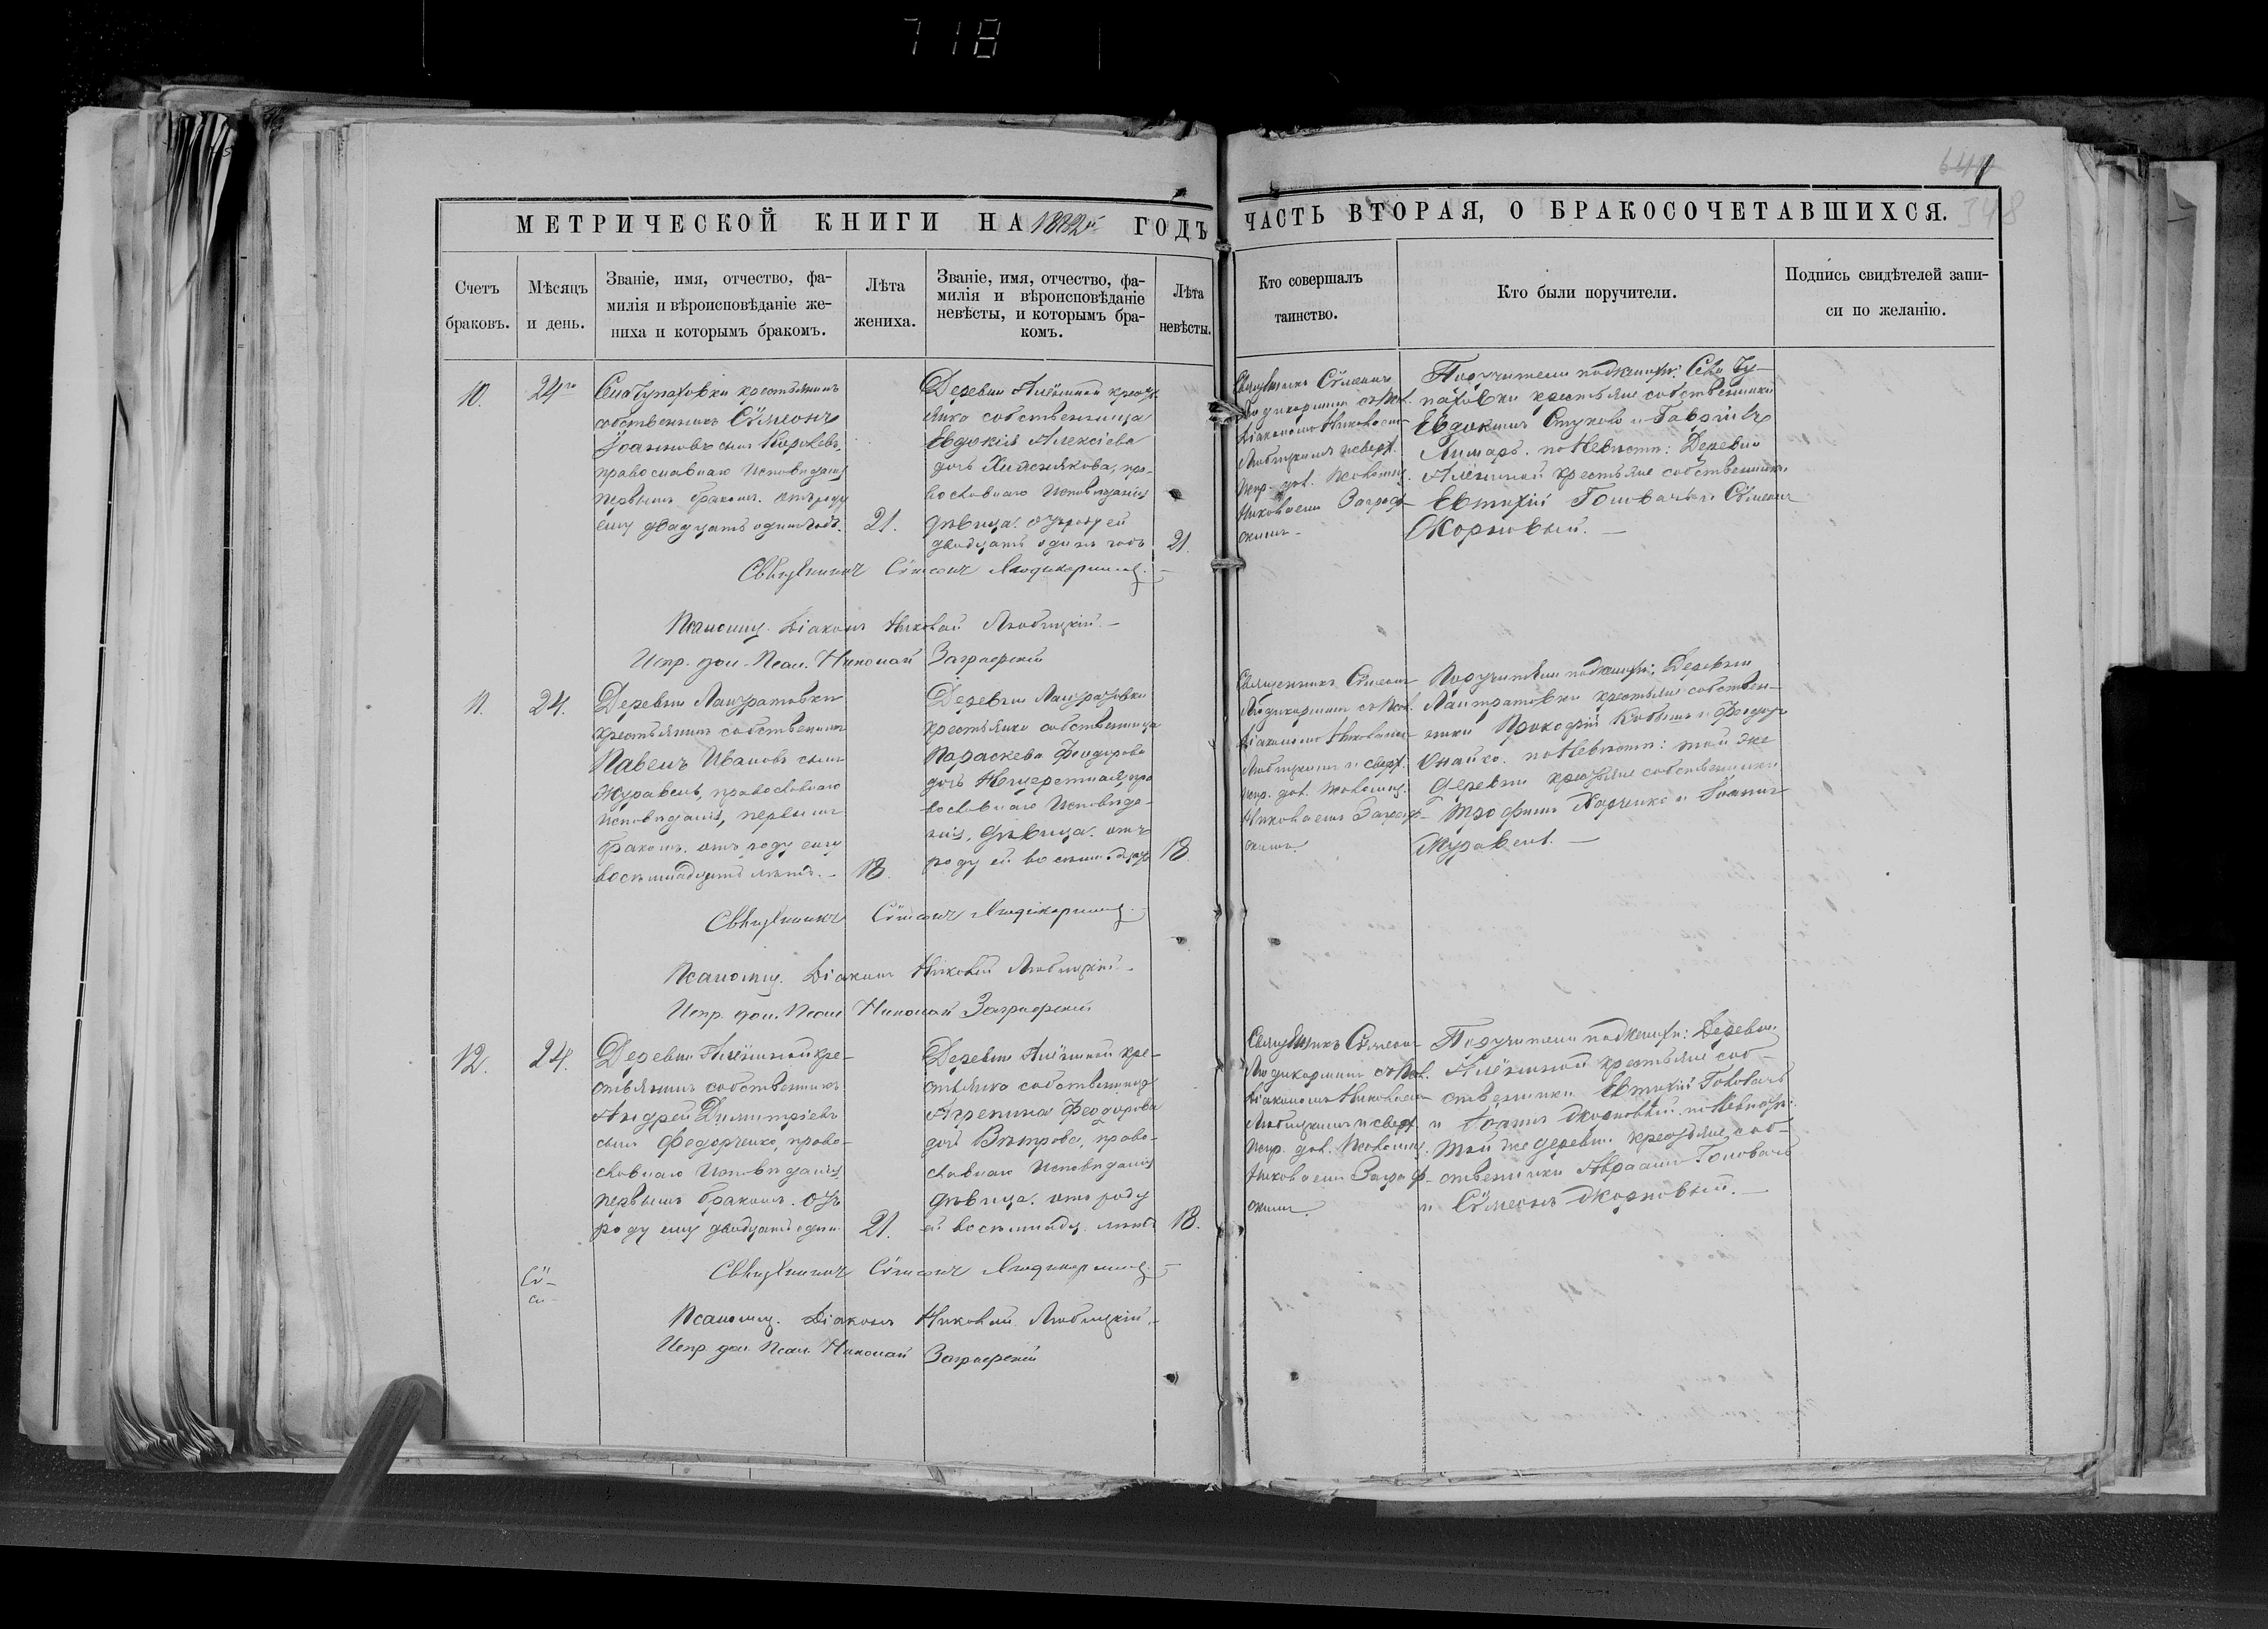 718
641
348
МЕТРИЧЕСКОЙ КНИГИ НА 1882й ГОДЪ
ЧАСТЬ ВТОРАЯ, О БРАКОСОЧЕТАВШИХСЯ.
Счетъ браковъ.
Мѣсяцъ и день.
Званіе, имя, отчество, фа-
милія и вѣроисповѣданіе же-
ниха и которымъ бракомъ.
Лѣта
жениха.
Званіе, имя, отчество, фа-
милія и вѣроисповѣданіе
невѣсты, и которымъ бра-
комъ.
Лѣта
невѣсты.
Кто совершалъ
таинство.
Кто были поручители.
Подпись свидѣтелей запи-
си по желанію.
10.
24го
крестьянинъ
собственникъ Сѵмеонъ
Іоанновъ сынъ
православнаго исповѣданія
первымъ бракомъ. отъ роду
ему двадцать одинъ годъ.
21.
Деревни Алёшиной крест
янка собственница
Евдокія Алексіева
дочь Хижнякова, пра-
вославнаго исповѣданія
дѣвица. отъ роду ей
двадцать одинъ годъ
21.
Священникъ Сѵмеонъ
съ Псал.
Діакономъ Николаемъ
Любицкимъ и сверх.
Испр. дол. Псаломщ.
Николаемъ Заграф-
скимъ
Поручители по женихѣ: Села Ту-
крестьяне собственники
Евдокимъ Стуковъ и Гавріилъ
Лимарь. по невѣстѣ: Деревни
Алёшиной крестьяне собственники
Евтихій Головачъ и Сѵмеонъ
Жорновый.
Священникъ Сѵмеонъ
Псаломщ. Діаконъ Николай Любицкій.
Испр. дол. Псал. Николай Заграфскій
11.
24.
Деревни Лантратовки
крестьянинъ собственникъ
Павелъ Ивановъ сынъ
Журавель, православнаго
исповѣданія, первымъ
бракомъ. отъ роду ему
восемнадцать лѣтъ.
18.
Деревни Лантратовки
крестьянка собственница
Параскева Феодорова
дочь пра
вославнаго исповѣда-
нія, дѣвица. отъ
роду ей
18
Священникъ Сѵмеонъ
съ Псал.
Діакономъ Николаемъ
Любицкимъ и сверх.
Испр. дол. Псаломщ.
Николаемъ Заграф-
скимъ.
Поручители по женихѣ: Деревни
Лантратовки крестьяне собствен-
ники Прокофій и Феодоръ
по невѣстѣ: той же
деревни крестьяне собственники
Трофимъ Харченко и Іоаннъ
Журавель.
Священникъ Сѵмеонъ
Псаломщ. Діаконъ Николай Любицкій.
Испр. дол. Псал Николай Заграфскій
12.
24.
Деревни Алёшиной кре-
стьянинъ собственникъ
Андрей Димитріевъ
сынъ Федорченко, право-
славнаго исповѣданія,
первымъ бракомъ. отъ
роду ему двадцать одинъ
21.
Деревни Алёшиной кре-
стьянка собственница
Агрепина Феодорова
дочь Вѣтрова, право-
славнаго исповѣданія
дѣвица. отъ роду
ей восемнадц. лѣтъ
18.
Священникъ Сѵмеонъ
съ Псал.
Діакономъ Николаемъ
Любицкимъ и сверх.
Испр. дол. Псаломщ.
Николаемъ Заграф-
скимъ.
Поручители по женихѣ: Деревни
Алёшиной крестьяне соб-
ственники Евтихій Головачъ
и Іоаннъ Жорновый. по невѣстѣ:
той же деревни крестьяне соб-
ственники Авраамъ Головачъ
и Сѵмеонъ Жорновый.
Священникъ Сѵмеонъ
Псаломщ. Діаконъ Николай Любицкій.
Испр. дол. Псал. Николай Заграфскій